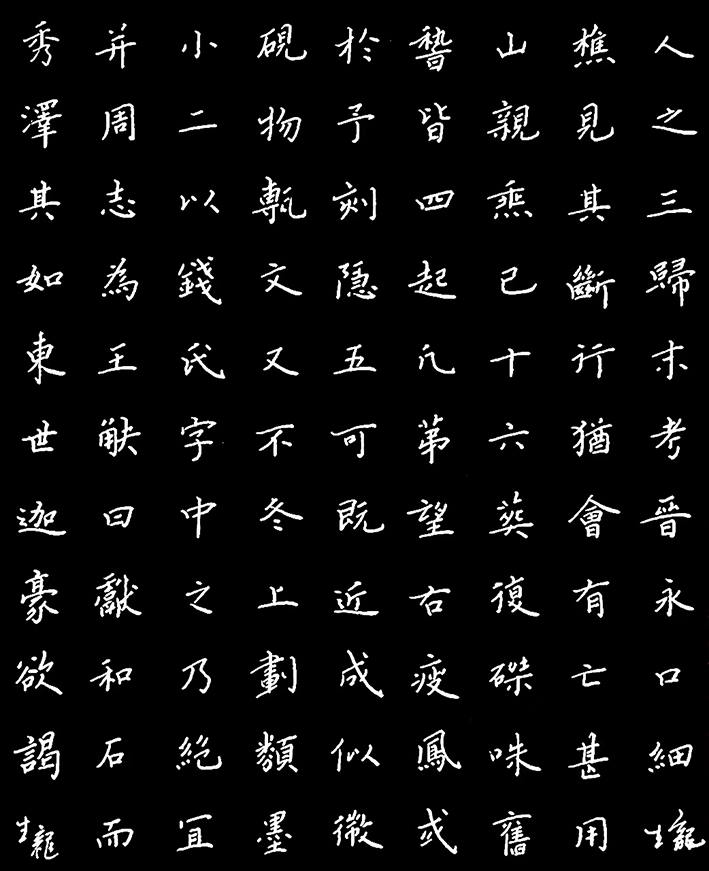 人之三歸末考晉永口細
樵見其斷行猶會有亡甚用
山親乘已十六葬復磔咮舊
皆四起凡第望右疲鳳或
於予刻隱五可既近成似微
硯物甎文又不冬上劃類墨
小二以錢氏字中之乃絕冝
并周志為王觖曰獻和石而
秀澤其如東世迦豪欲謁